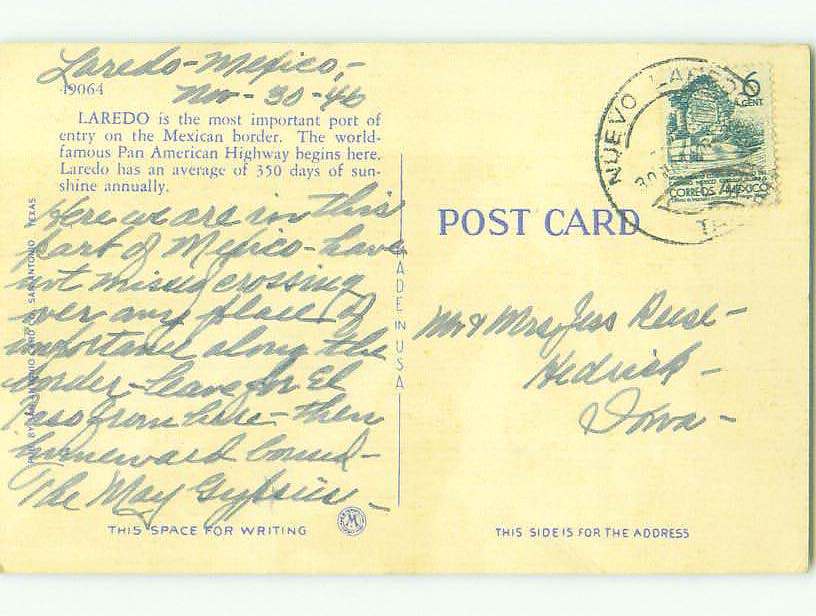 Laredo-Mexico,-
49064
Nov-30-46
LAREDO is the most important port of
entry on the Mexican border. The world-
famous Pan American Highway begins here.
Laredo has an average of 350 days of sun-
shine annually.
Here we are in this
part of Mexico-have
not missed crossing
over any place of
importance along the
border-leave for El
Paso from here-then
homeward bound-
The May Gypsies-
THIS SPACE FOR WRITING
SAN ANTONIO CARD SAN ANTONIO, TEXAS
MADE IN USA
POST CARD
NUEVO LAREDO
30
TA
6
CENT
CORREOS MEXICO
Mr & Mrs Jess Reese-
Hedrick-
Iowa-
THIS SIDE IS FOR THE ADDRESS